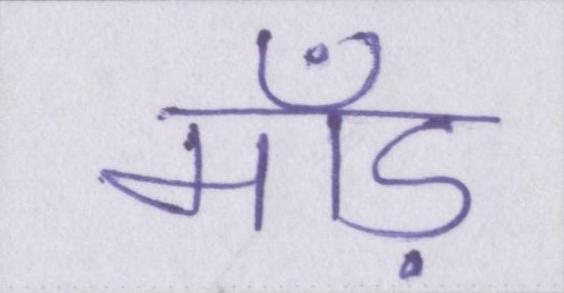 माँड़